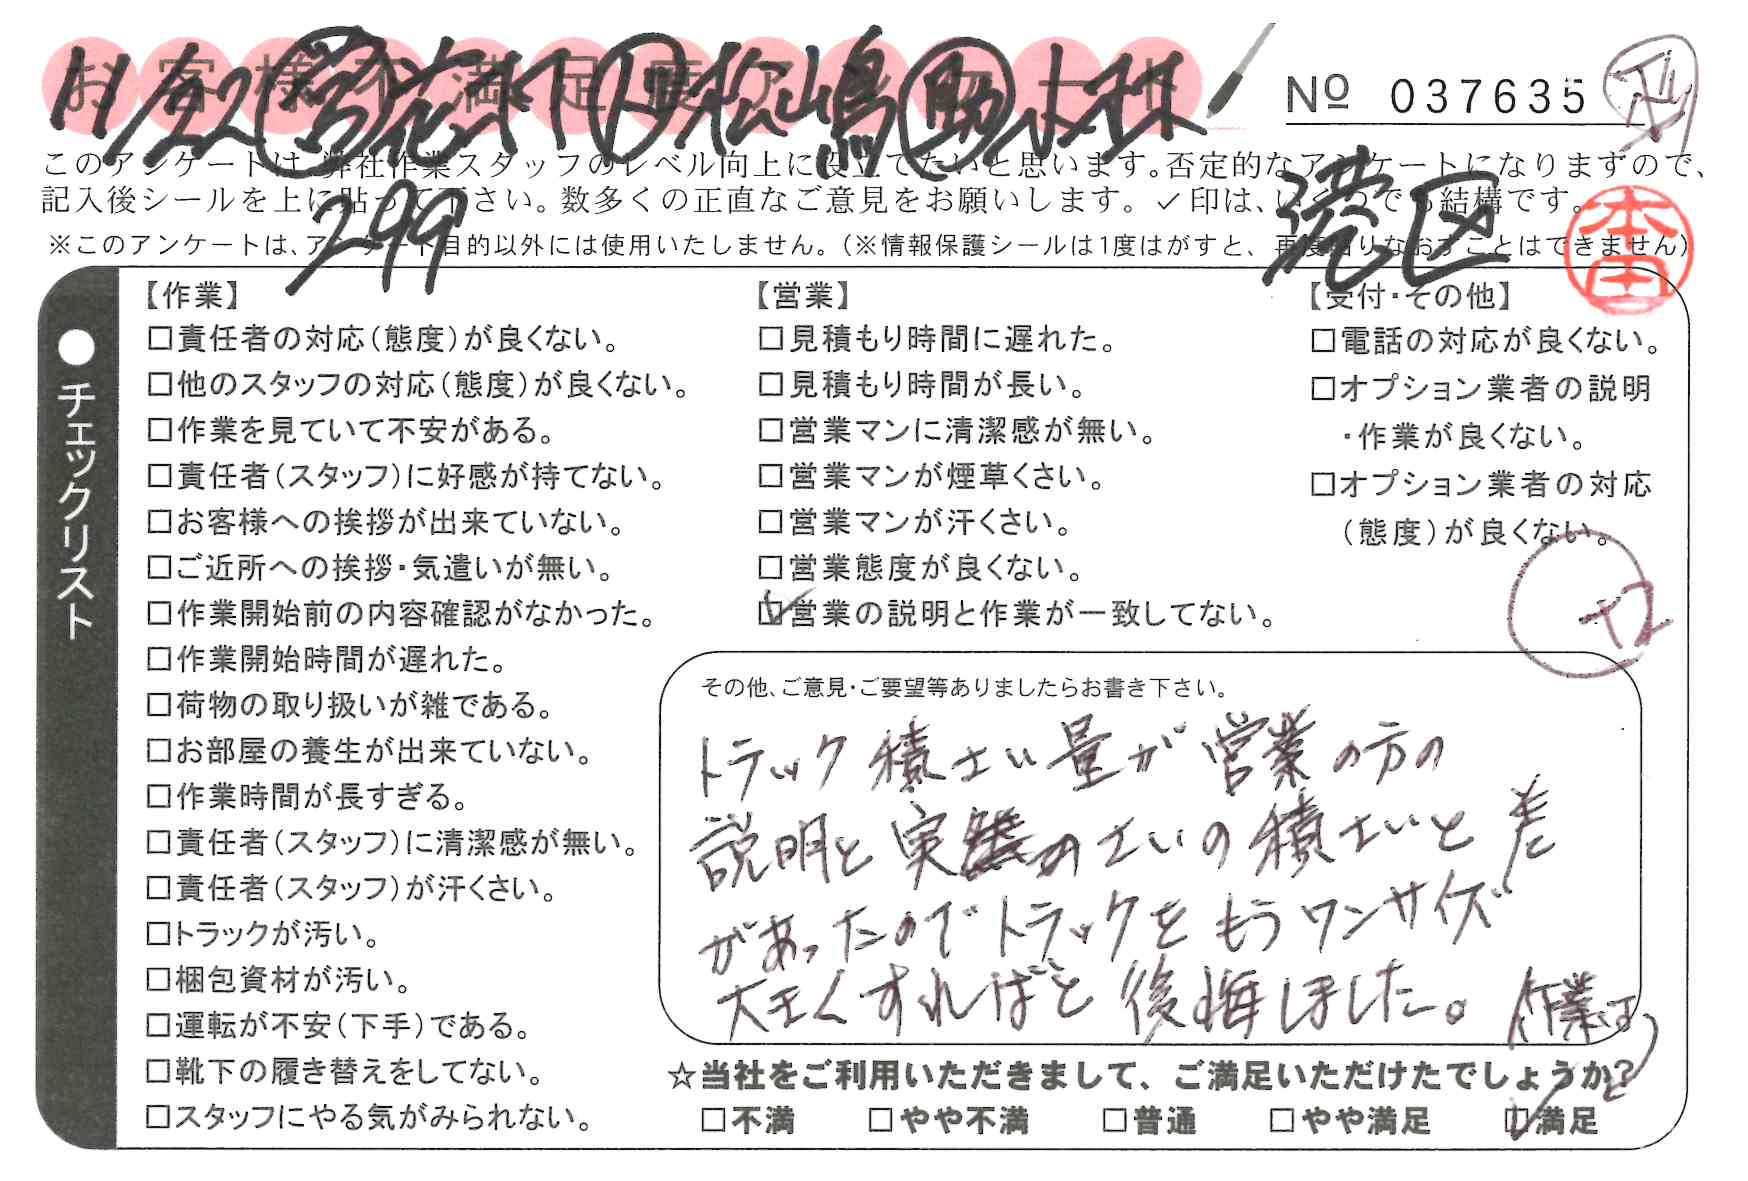 お客様不満足度アンケート
11/22 営 花村 ド 松嶋 助 小林
No 037635
このアンケートは、弊社作業スタッフのレベル向上に役立てたいと思います。否定的なアンケートになりますので、
記入後シールを上に貼って下さい。数多くの正直なご意見をお願いします。✓印は、いくつでも結構です。
299
港区
本田
※このアンケートは、アンケート目的以外には使用いたしません。(※情報保護シールは1度はがすと、再度貼りなおすことはできません)
●チェックリスト
【作業】
□責任者の対応(態度)が良くない。
□他のスタッフの対応(態度)が良くない。
□作業を見ていて不安がある。
□責任者(スタッフ)に好感が持てない。
□お客様への挨拶が出来ていない。
□ご近所への挨拶・気遣いが無い。
□作業開始前の内容確認がなかった。
□作業開始時間が遅れた。
□荷物の取り扱いが雑である。
□お部屋の養生が出来ていない。
□作業時間が長すぎる。
□責任者(スタッフ)に清潔感が無い。
□責任者(スタッフ)が汗くさい。
□トラックが汚い。
□梱包資材が汚い。
□運転が不安(下手)である。
□靴下の履き替えをしてない。
□スタッフにやる気がみられない。
【営業】
□見積もり時間に遅れた。
□見積もり時間が長い。
□営業マンに清潔感が無い。
□営業マンが煙草くさい。
□営業マンが汗くさい。
□営業態度が良くない。
☑営業の説明と作業が一致してない。
【受付・その他】
□電話の対応が良くない。
□オプション業者の説明
・作業が良くない。
□オプション業者の対応
(態度)が良くない。
+2
その他、ご意見・ご要望等ありましたらお書き下さい。
トラック積さい量が営業の方の
説明と実際のさいの積さいと差
があったのでトラックをもうワンサイズ
大きくすればと後悔しました。作業は
☆当社をご利用いただきまして、ご満足いただけたでしょうか?
□不満 □やや不満 □普通 □やや満足 ☑満足